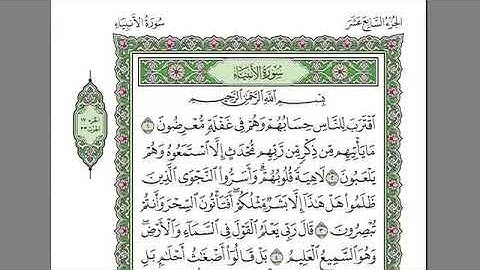 الجزء السابع عشر
سورة الأنبياء
سُورَةُ الأَنبيَاء
بِسْمِ اللَّهِ الرَّحْمَٰنِ الرَّحِيمِ
الجزء ١٧
اقْتَرَبَ لِلنَّاسِ حِسَابُهُمْ وَهُمْ فِي غَفْلَةٍ مُّعْرِضُونَ ١
مَا يَأْتِيهِم مِّن ذِكْرٍ مِّن رَّبِّهِم مُّحْدَثٍ إِلَّا اسْتَمَعُوهُ وَهُمْ
يَلْعَبُونَ ٢ لَاهِيَةً قُلُوبُهُمْ وَأَسَرُّوا النَّجْوَى الَّذِينَ
ظَلَمُوا هَلْ هَٰذَا إِلَّا بَشَرٌ مِّثْلُكُمْ أَفَتَأْتُونَ السِّحْرَ وَأَنتُمْ
تُبْصِرُونَ ٣ قَالَ رَبِّي يَعْلَمُ الْقَوْلَ فِي السَّمَاءِ وَالْأَرْضِ
وَهُوَ السَّمِيعُ الْعَلِيمُ ٤ بَلْ قَالُوا أَضْغَاثُ أَحْلَامٍ بَلِ